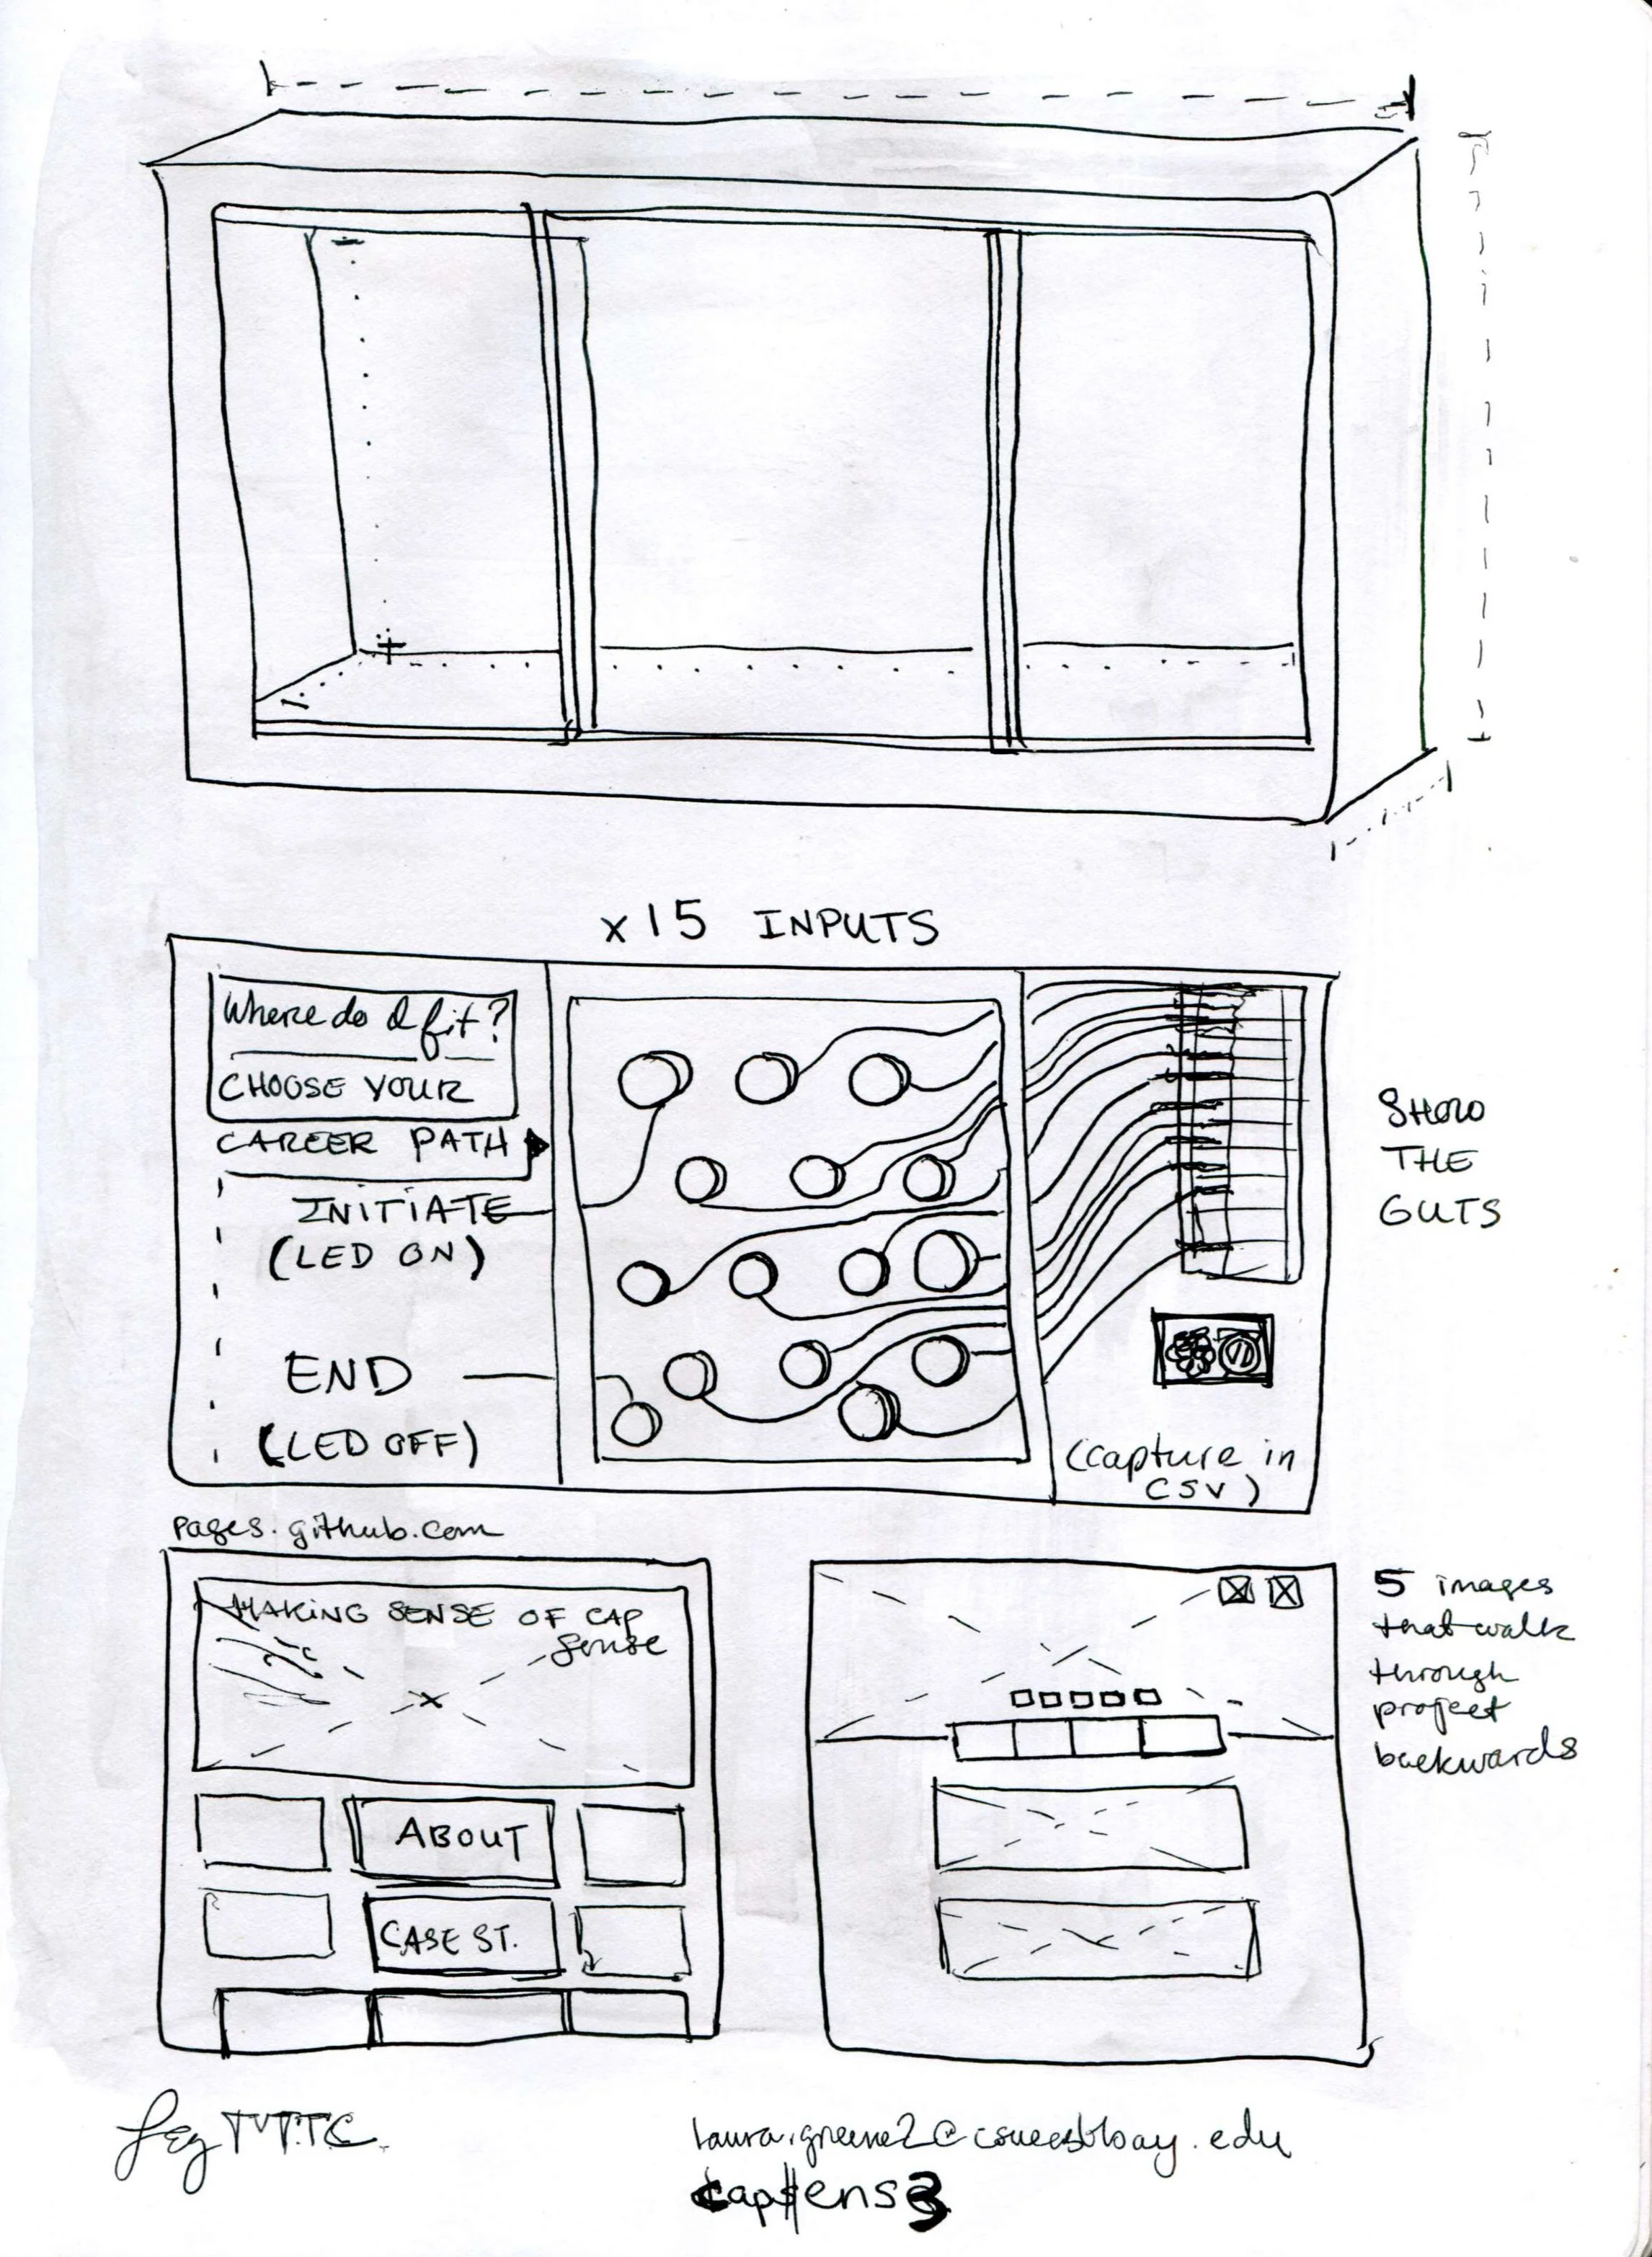 x 15 INPUTS
Where do I fit?
CHOOSE YOUR
CAREER PATH
INITIATE
(LED ON)
END
(LED OFF)
(capture in
CSV)
SHOW
THE
GUTS
pages.github.com
MAKING SENSE OF CAP
Sense
ABOUT
CASE ST.
5 images
that walk
through
project
backwards
laura.greene2@csueastbay.edu